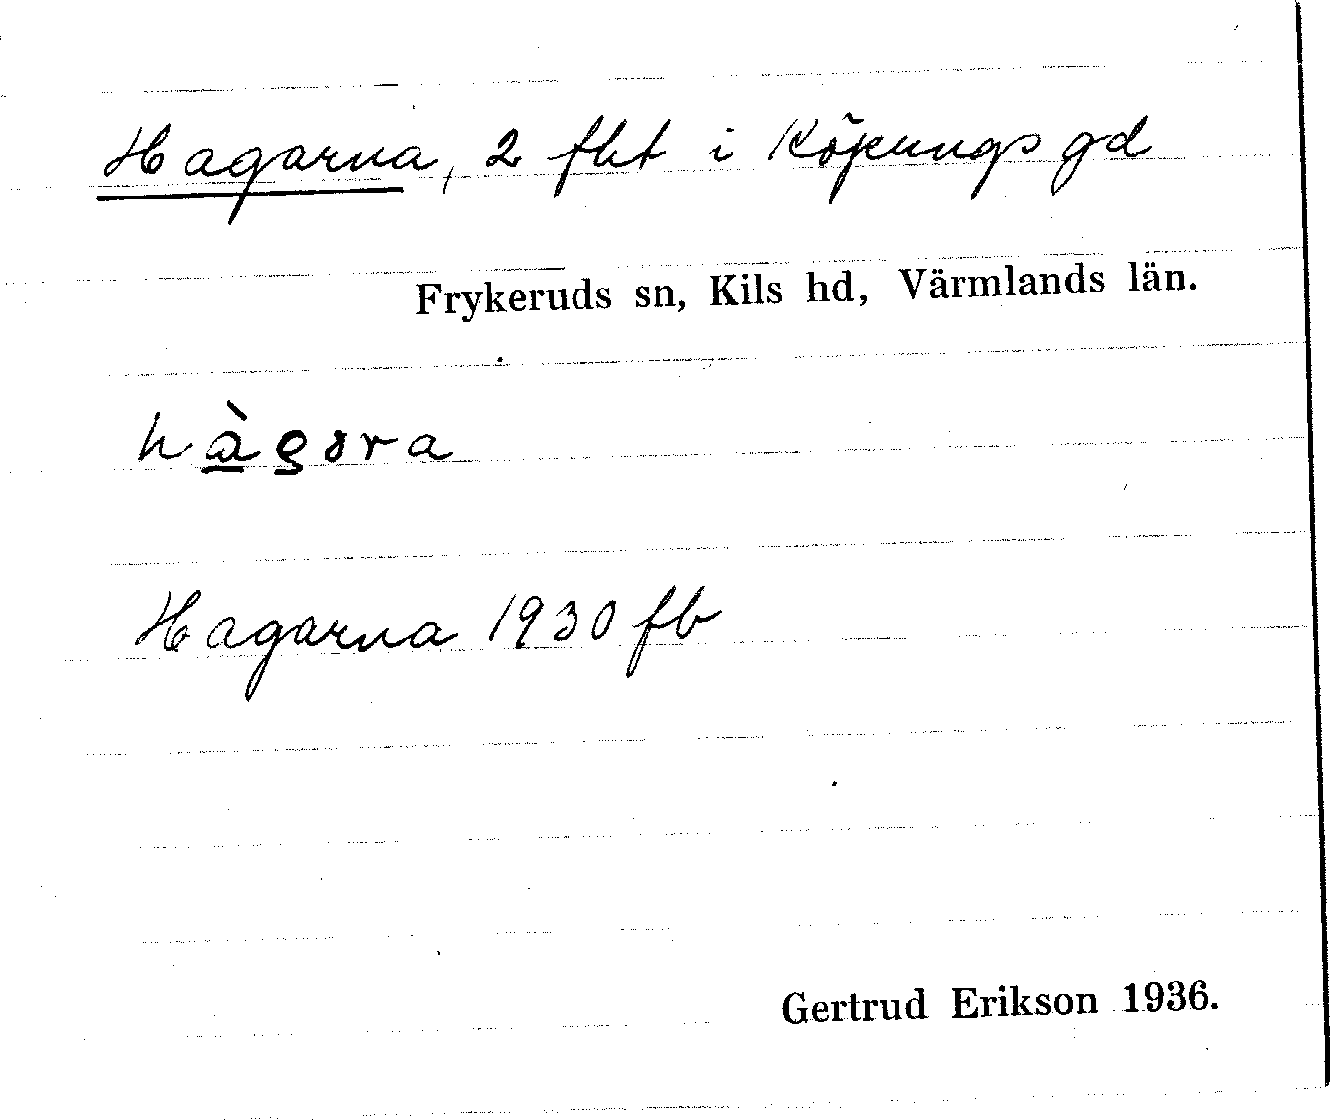 Hagarna, 2 fht i Köpungs gd
Frykeruds sn, Kils hd, Värmlands län.
hàgɜra
Hagarna 1930 fb
Gertrud Erikson 1936.